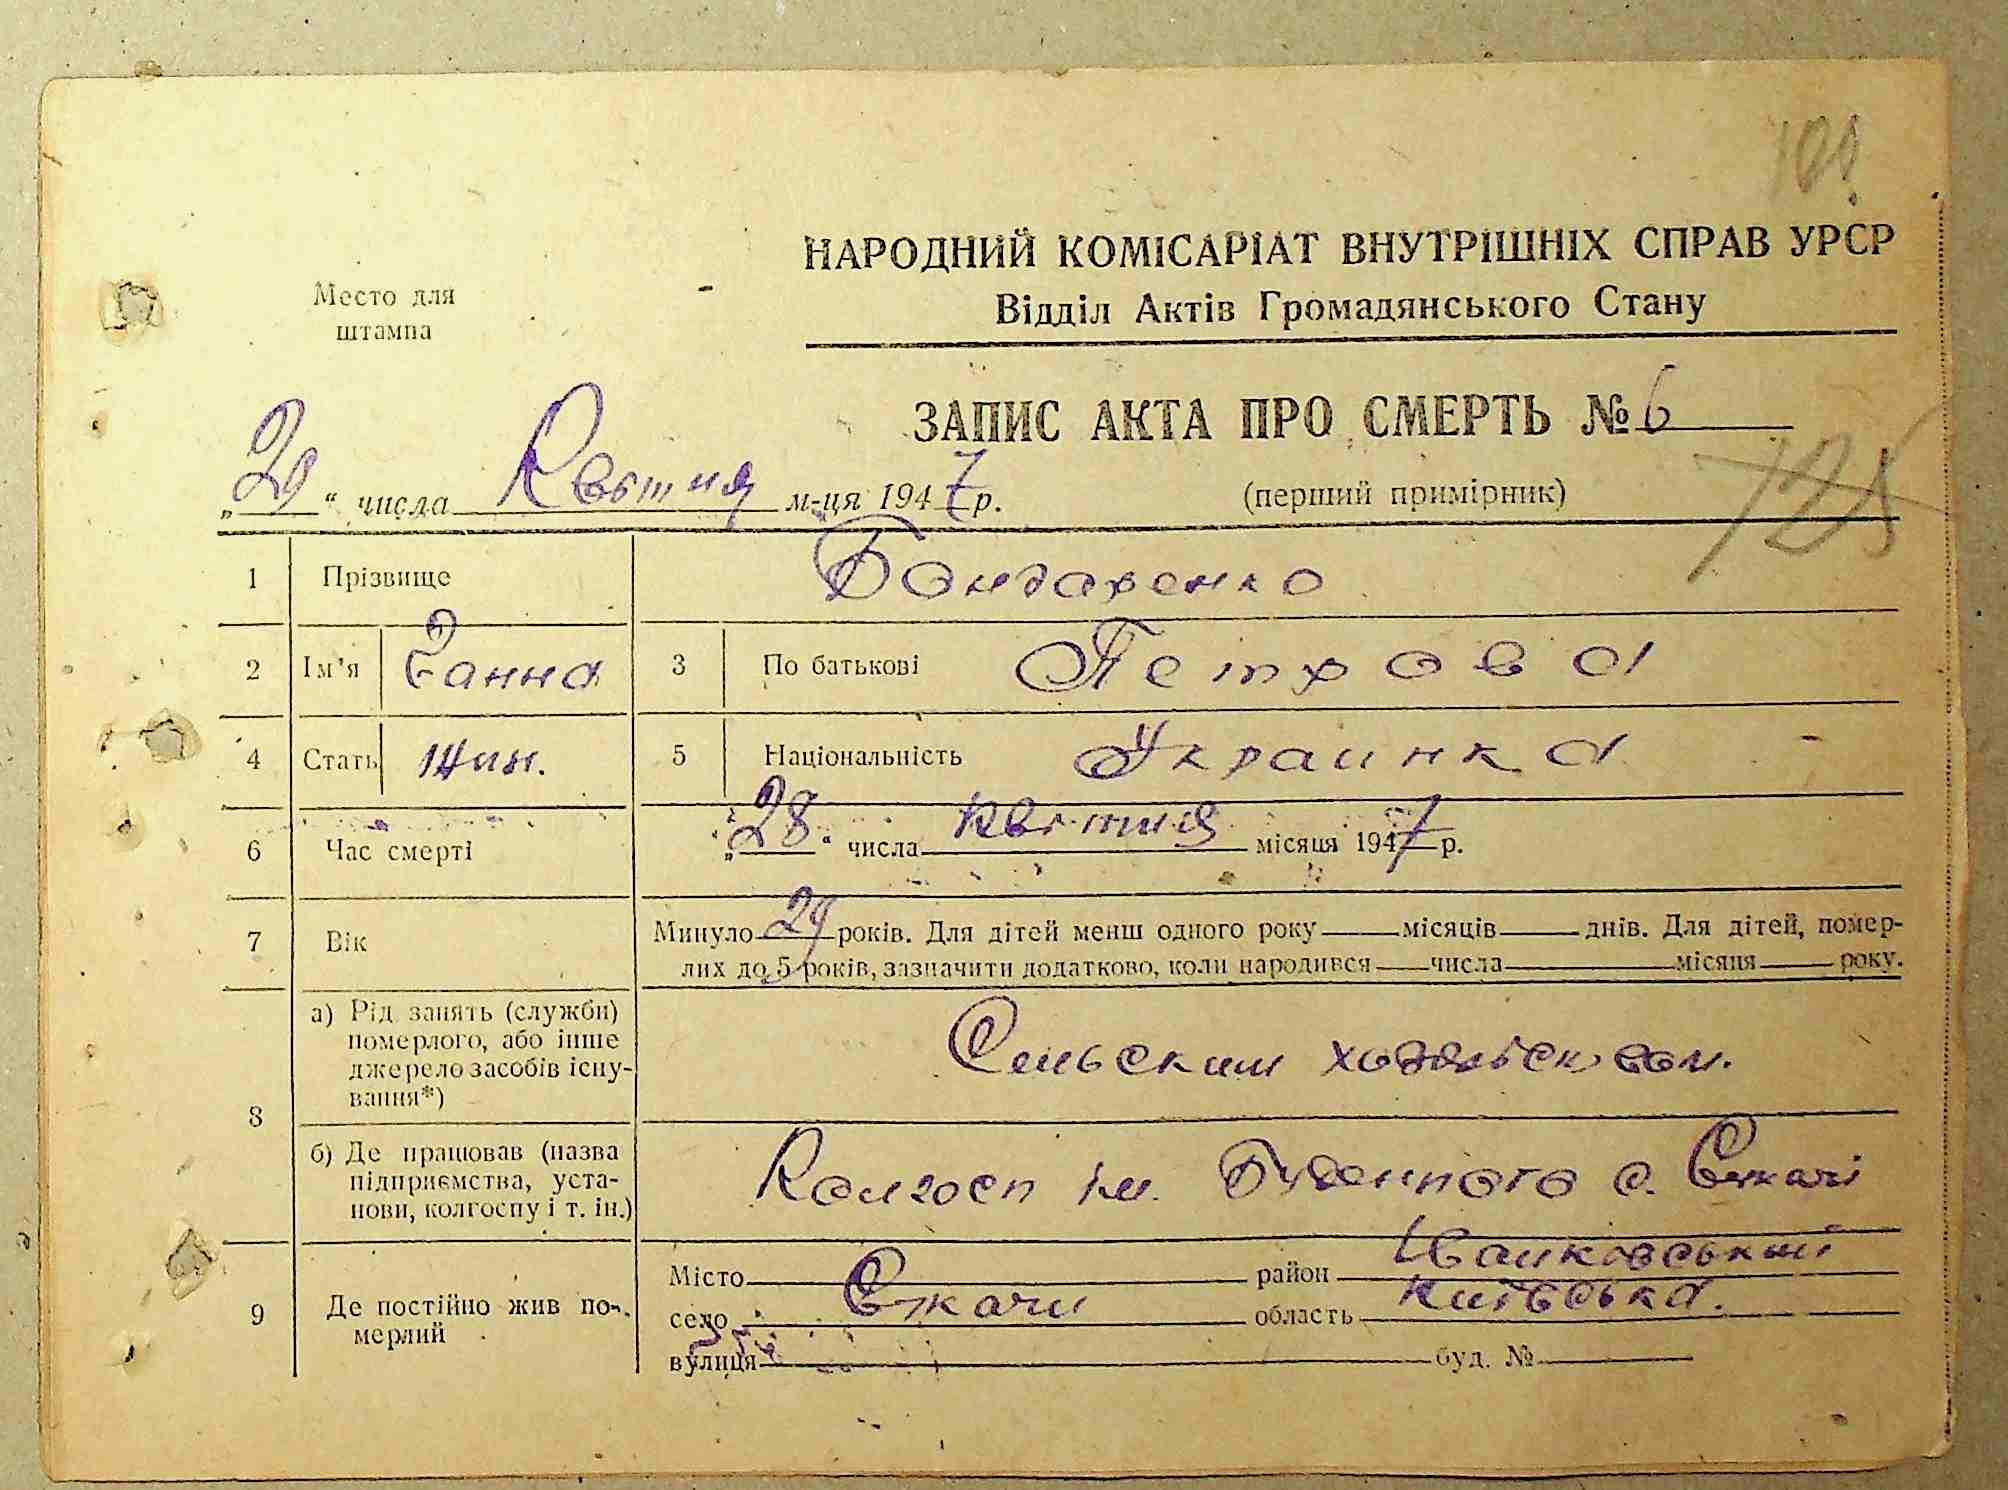 101
НАРОДНИЙ КОМІСАРІАТ ВНУТРІШНІХ СПРАВ УРСР
Відділ Актів Громадянського Стану
Место для
штампа
ЗАПИС АКТА ПРО СМЕРТЬ № 6
„29“ числа Квітня м-ця 1947 р.
(перший примірник)
1 Прізвище Бондаренко
2 Ім'я Ганна 3 По батькові Петрова
4 Стать Жін. 5 Національність Украинка
6 Час смерті „28“ числа квітня місяця 1947 р.
7 Вік Минуло 29 років. Для дітей менш одного року місяців днів. Для дітей, помер-
лих до 5 років, зазначити додатково, коли народився числа місяця року.
8 а) Рід занять (служби)
померлого, або інше
джерело засобів існу-
вання*)
Сельским
б) Де працював (назва
підприємства, уста-
нови, колгоспу і т. ін.)
Колгосп ім. Буденного с.
9 Де постійно жив по-
мерлий
Місто район Іванковський
село область Київська.
вулиця буд. №